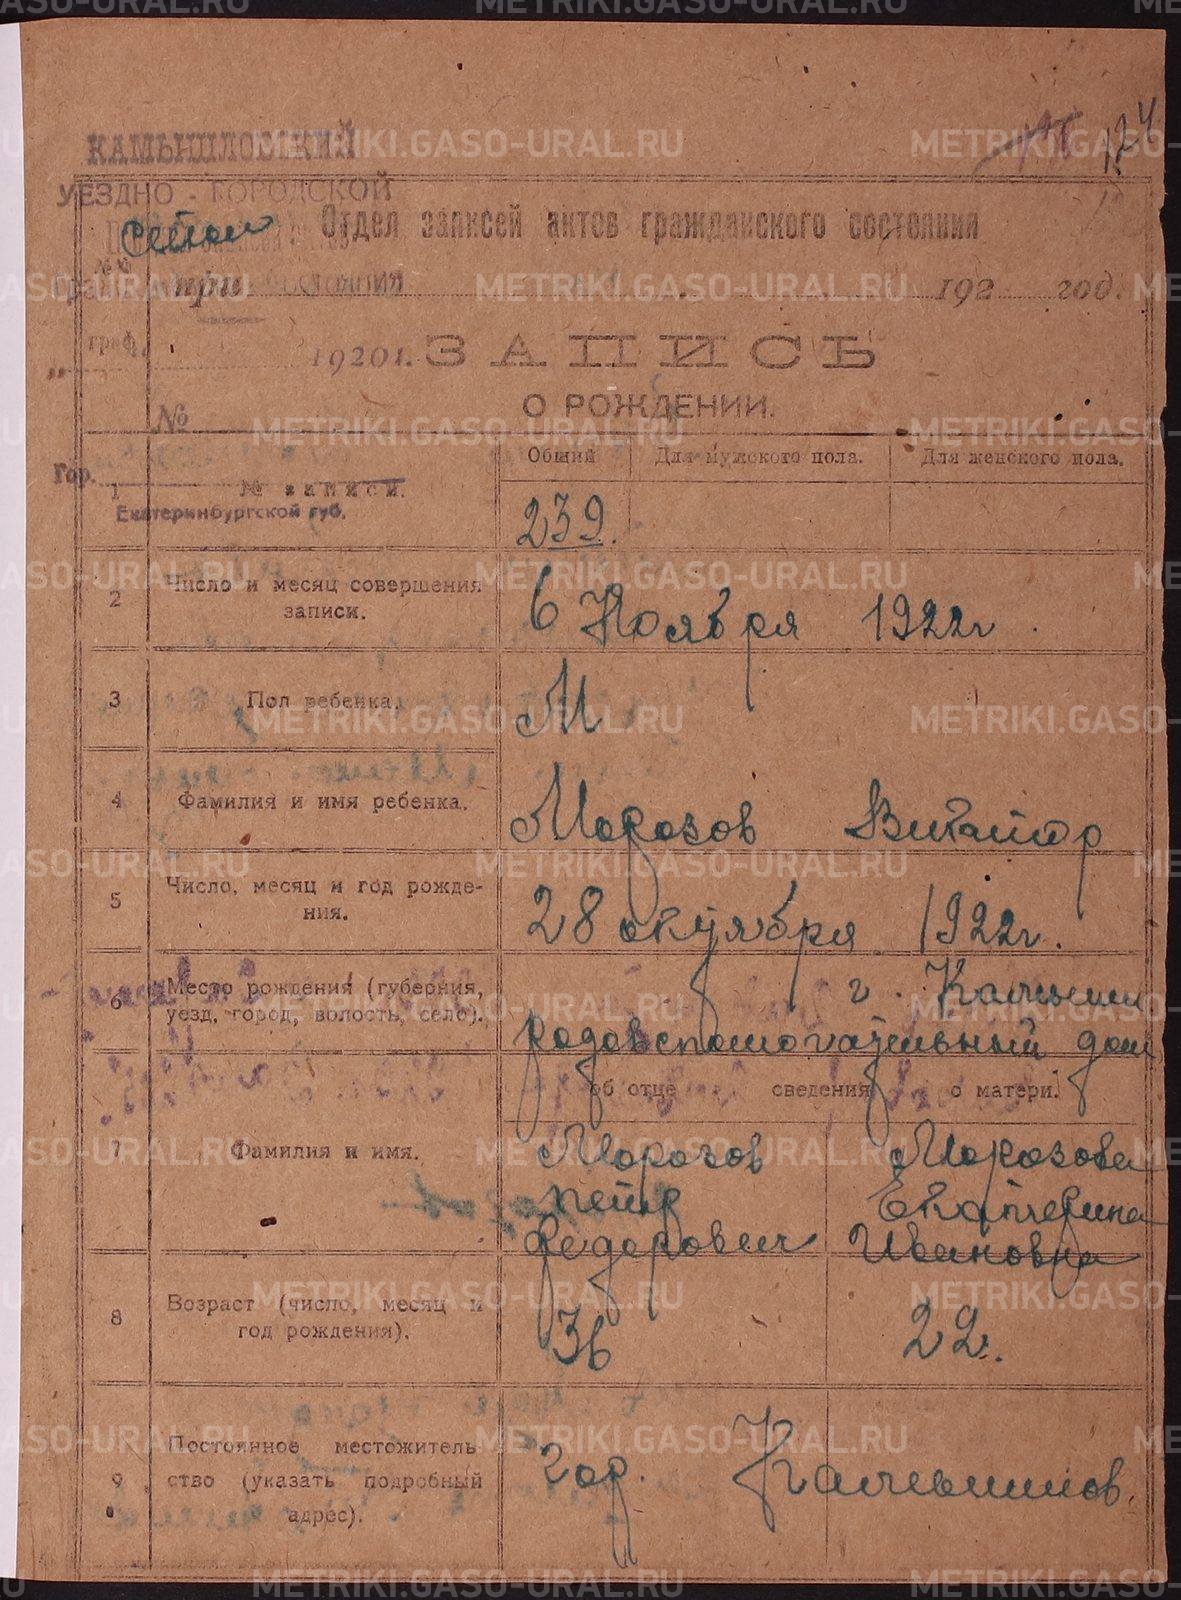 124
КАМЫШЛОВСКИЙ
УЕЗДНО - ГОРОДСКОЙ
Отдел записей актов гражданского состояния
при
192 год.
граф.
1920 г.
ЗАПИСЬ
О РОЖДЕНИИ.
№
Общий Для мужского пола. Для женского пола.
Гор.
1 № записи. 239.
Екатеринбургской губ.
2 Число и месяц совершения
записи.
6 Ноября 1922г.
3 Пол ребенка. М
4 Фамилия и имя ребенка. Морозов Виктор
5 Число, месяц и год рожде-
ния.
28 октября 1922г.
6 Место рождения (губерния,
уезд, город, волость, село).
г. Камышл
родовспомогательный дом
об отце сведения о матери.
7 Фамилия и имя.
Морозов Морозова
Петр Екатерина
Федорович Ивановна
8 Возраст (число, месяц и
год рождения).
36 22.
9 Постоянное местожитель
ство (указать подробный
адрес).
гор. Камышлов.
METRIKI.GASO-URAL.RU